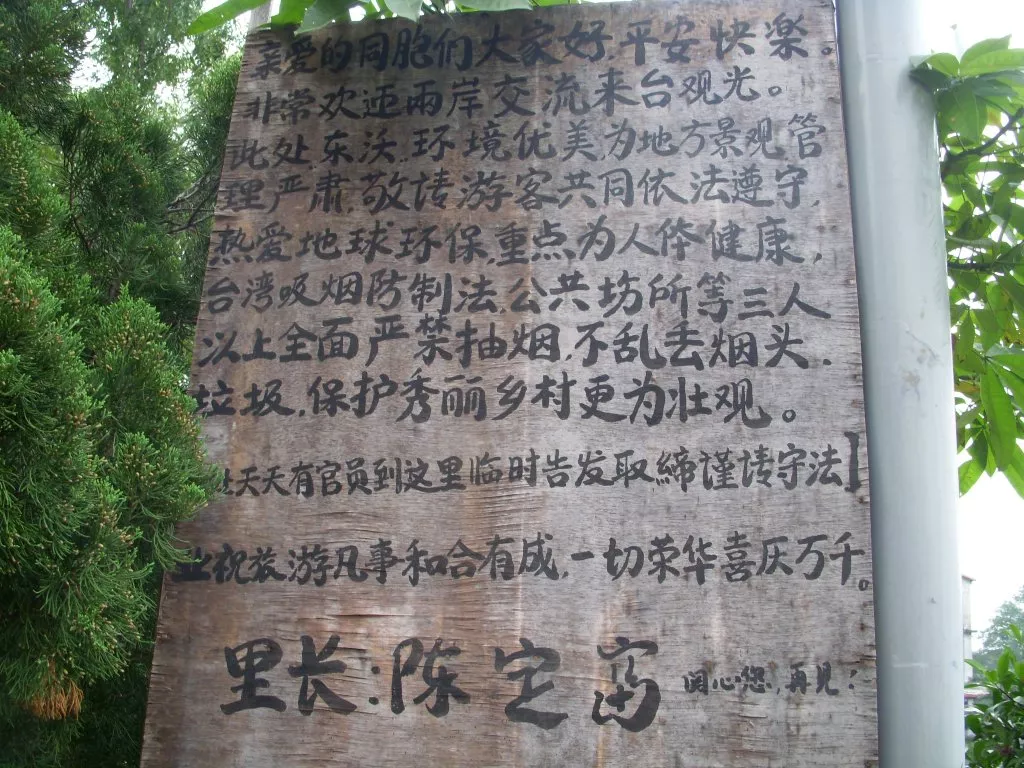 亲爱的同胞们大家好,平安快樂。
非常欢迎兩岸交流来台观光。
此处东沃,环境优美,为地方景观管
理严肃,敬请游客共同依法遵守,
热爱地球环保,重点为人体健康,
台湾吸烟防制法,公共场所等三人
以上全面严禁抽烟,不乱丢烟头.
垃圾,保护秀丽乡村更为壮观。
天天有官员到这里临时告发取締谨请守法】
祝旅游凡事和合有成,一切荣华喜庆万千。
里长:陈定富 関心您,再见!